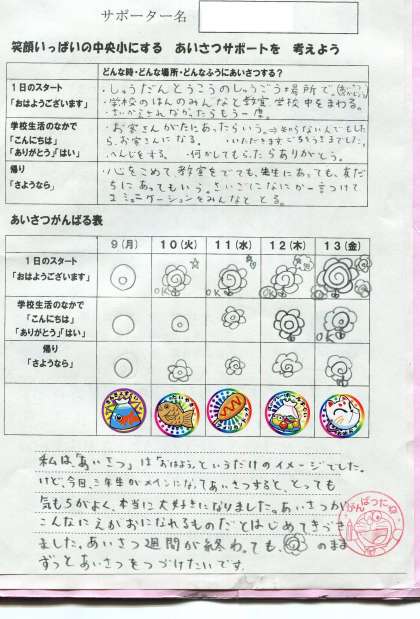 サポーター名
笑顔いっぱいの中央小にする　あいさつサポートを　考えよう
どんな時・どんな場所・どんなふうにあいさつする?
1日のスタート
「おはようございます」
・しゅうだんとうこうのしゅうごう場所で。
・学校のはんのみんなと教室学校中をまわる。
・きかえされなかったらもう一度。
学校生活のなかで
「こんにちは」
「ありがとう」「はい」
・お客さんがたにあったらいう。⇒知らない人でもした
ら、お客さんになる。　・いただきますごちそうさまでした。
・へんじをする。　・何かしてもらったらありがとう。
帰り
「さようなら」
・心をこめて教室をでても、先生にあっても、友だ
ちにあってもいう。さいごになにか一言つけて
コミュニケーションをみんなととる。
あいさつがんばる表
9(月)　10(火)　11(水)　12(木)　13(金)
1日のスタート
「おはようございます」
OK　OK　OK　OK
学校生活のなかで
「こんにちは」
「ありがとう」「はい」
OK
帰り
「さようなら」
私は「あいさつ」は「おはよう」というだけのイメージでした。
けど、今回、三年生がメインになってあいさつすると、とっても
気もちがよく、本当に大好きになりました。あいさつが
こんなにえがおになれるものだとはじめてきづき
ました。あいさつ週間が終わっても、のまま
ずっとあいさつをつづけたいです。
がんばったね